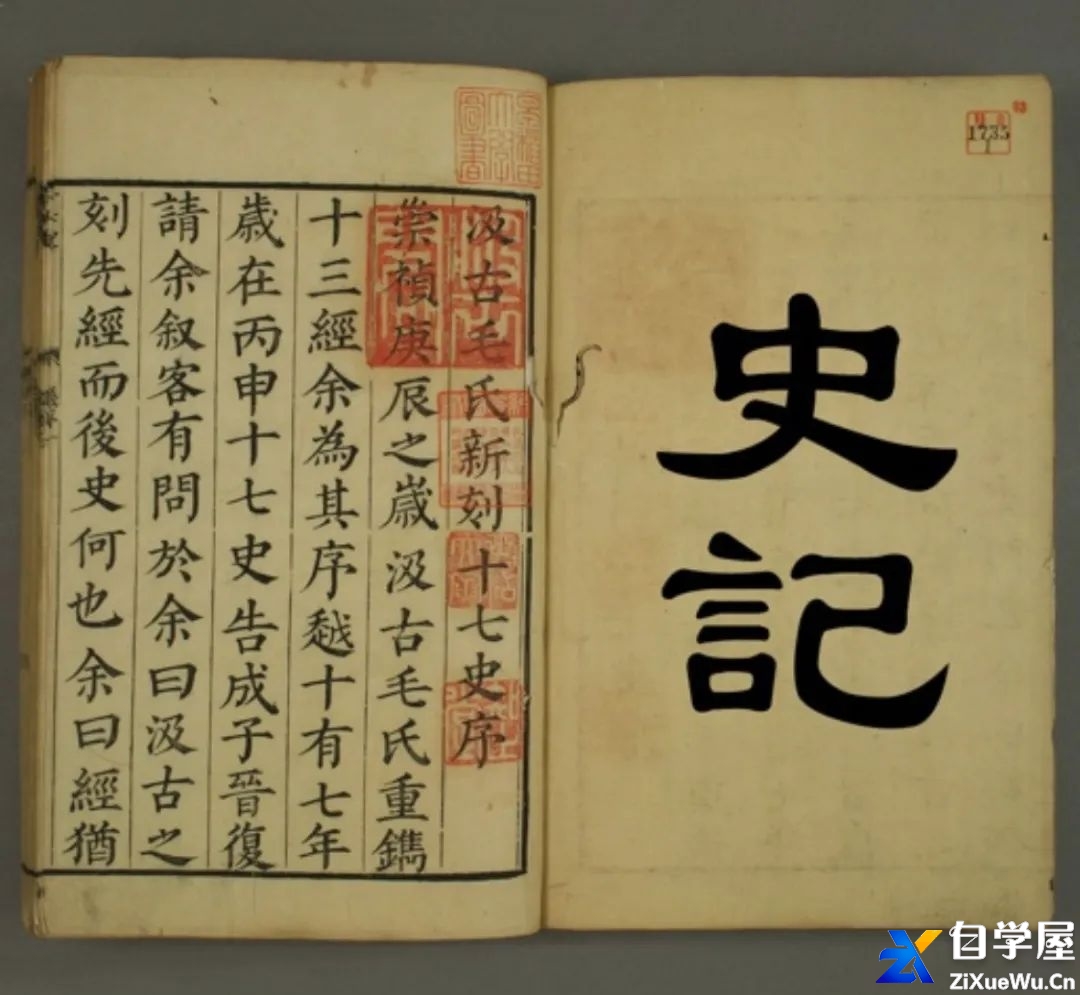 史記
汲古毛氏新刻十七史序
崇禎庚辰之嵗汲古毛氏重鐫
十三經余為其序越十有七年
歲在丙申十七史告成子晉復
請余叙客有問於余曰汲古之
刻先經而後史何也余曰經猶
1735
1
自学屋
ZiXueWu.Cn